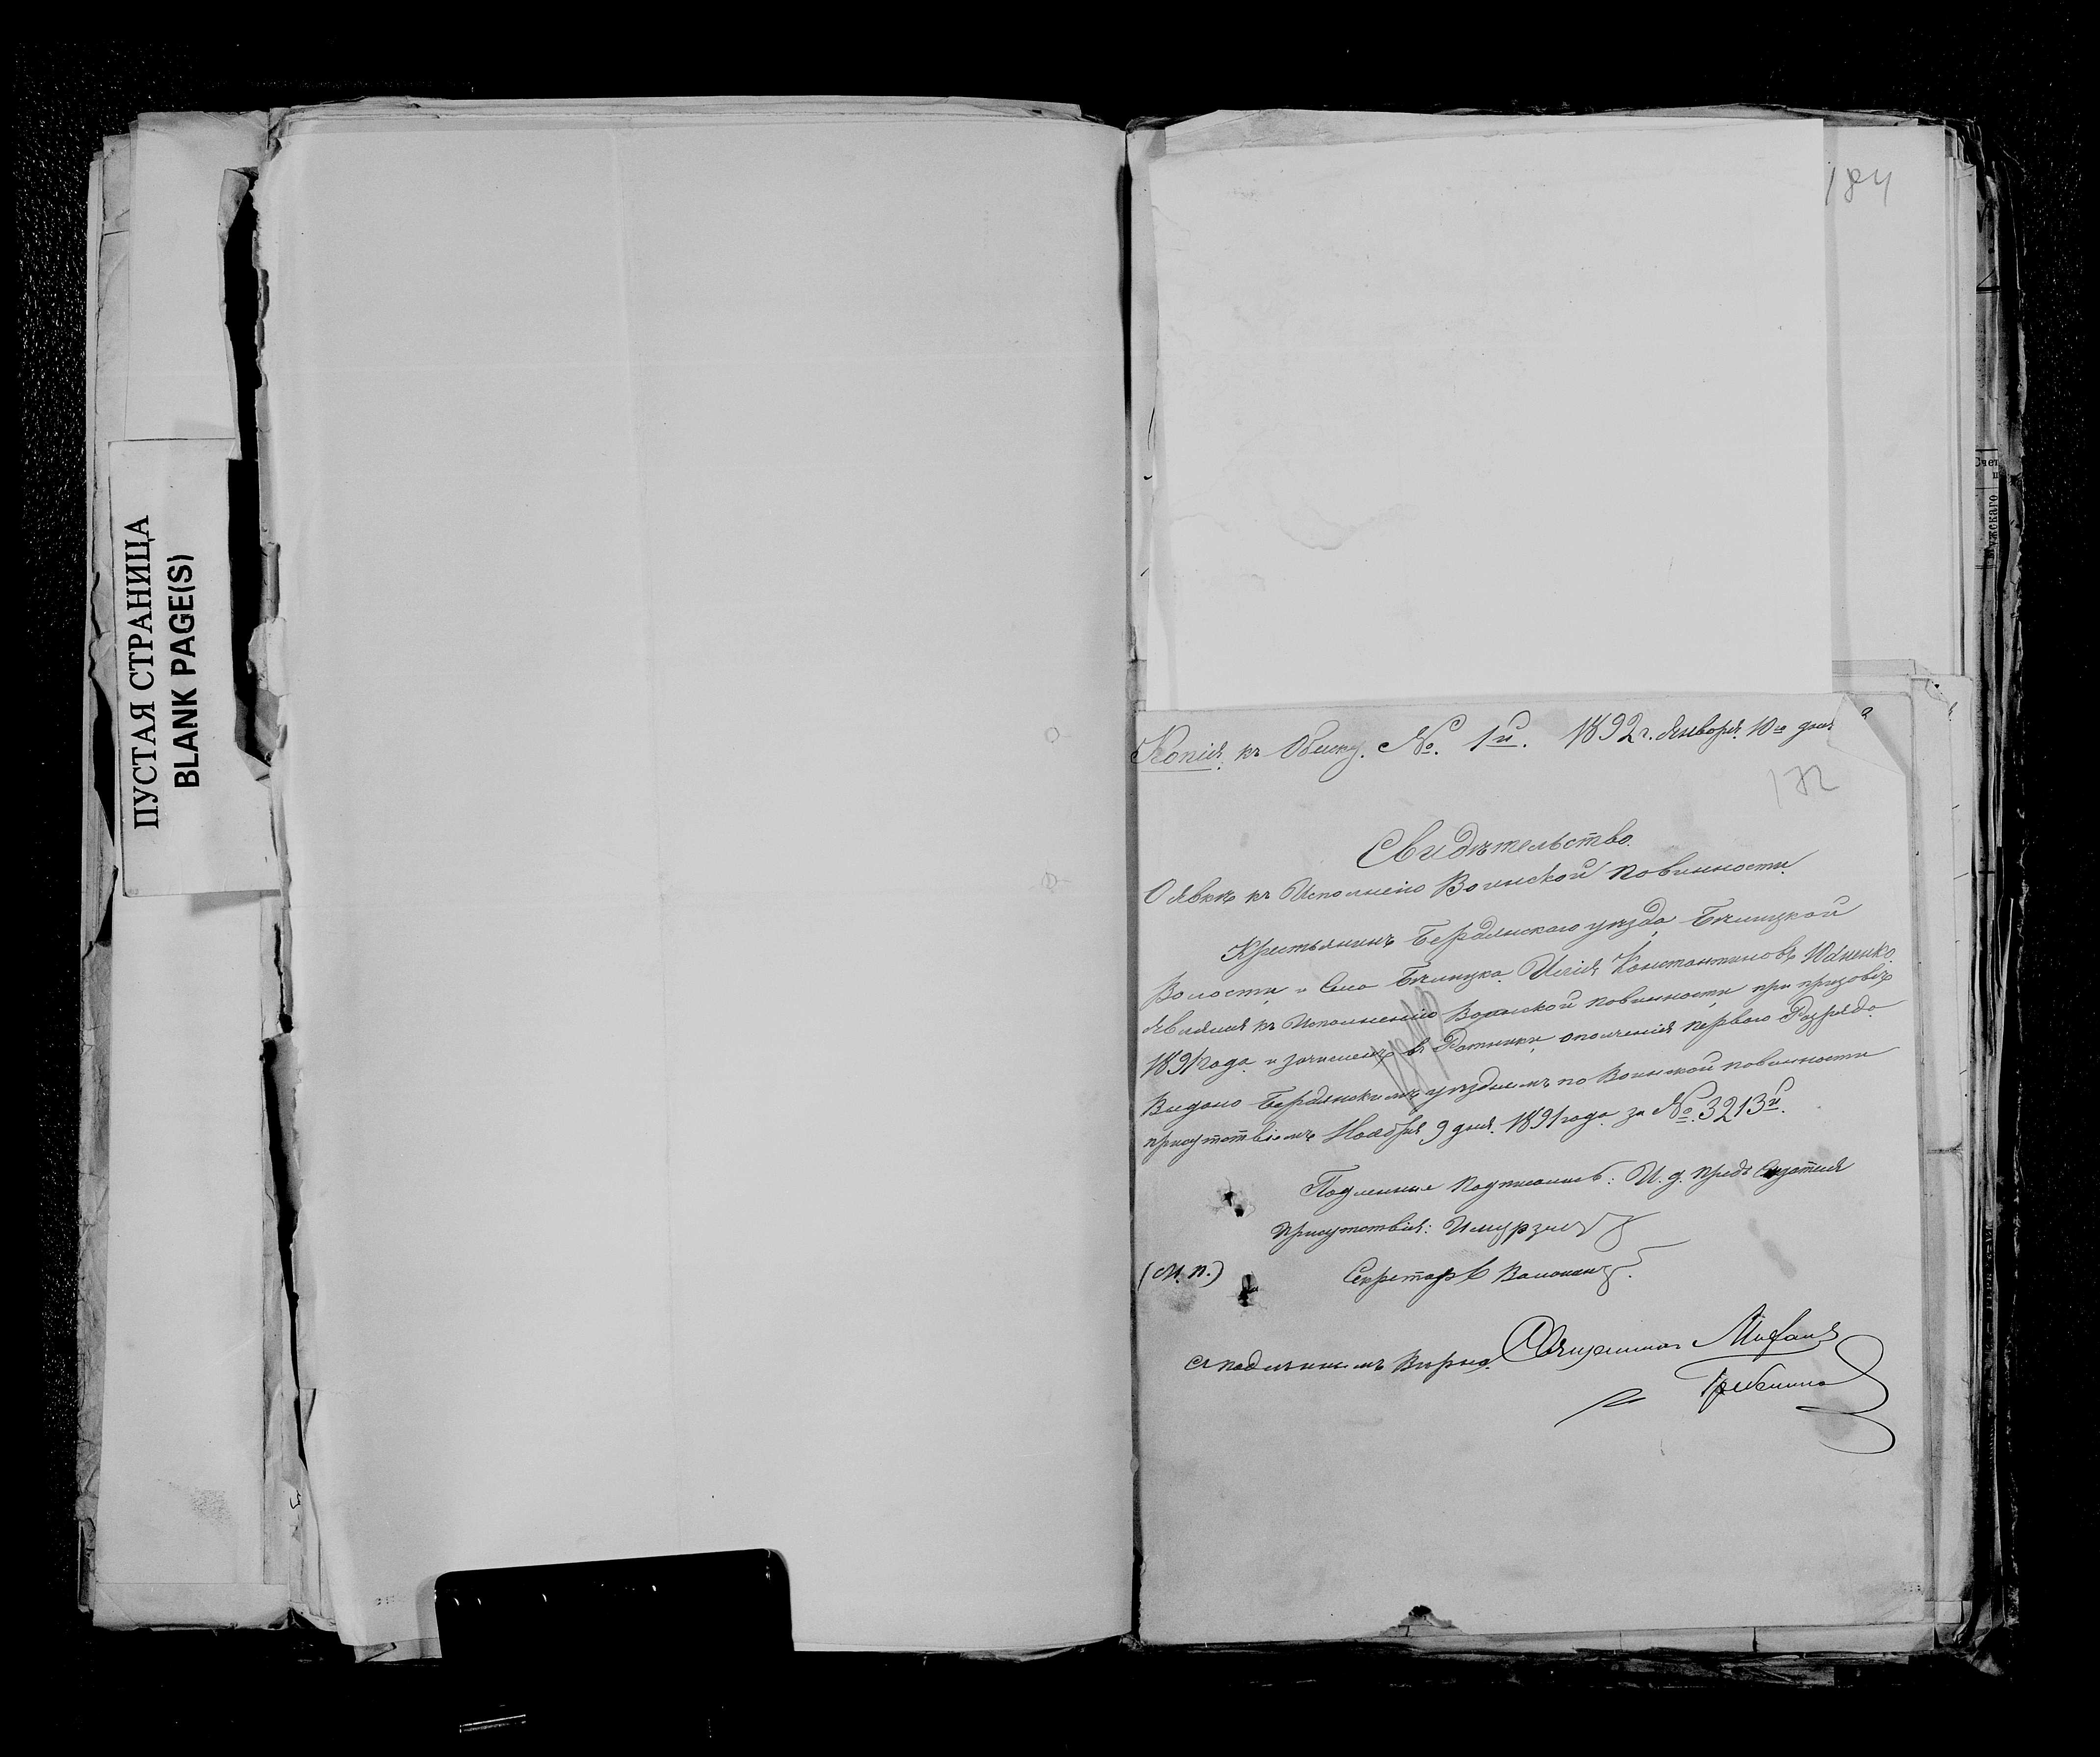 ПУСТАЯ СТРАНИЦА
BLANK PAGE(S)
184
Копія къ Обыску № 1й. 1892 г. Января 10го дня
172
Свидѣтельство.
О явкѣ къ Исполненію Воинской повинности.
Крестьянинъ Бердянскаго уѣзда
Волости и Села Илія Константиновъ
явился къ Исполненію Воинской повинности при призовѣ
1891 года и зачисленъ въ Ратники ополченія перваго Разряда.
Выдано Бердянскимъ уѣзднымъ по Воинской повинности
присутствіемъ Ноября 9 дня 1891 года за № 3213й.
Подлинное подписали: И. д. Предс
Присутствія:
(М. п.)
Секретарь
Съ подлиннымъ вѣрно. Священникъ